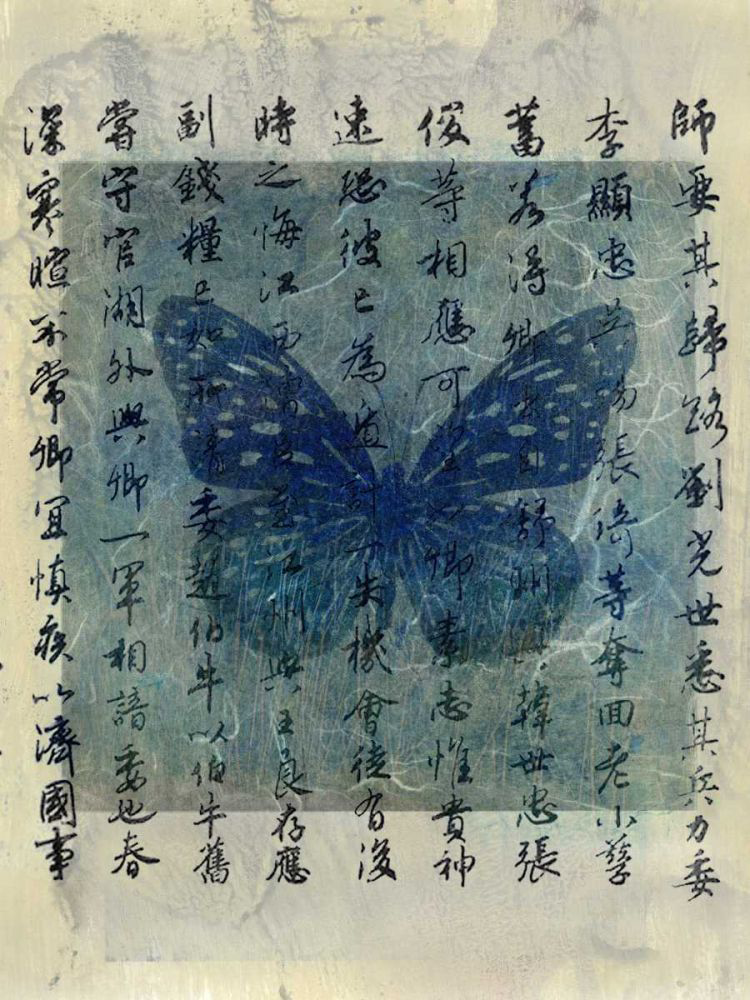 師要其歸路劉光世悉其兵力委
李顯忠吳錫張琦等奪回老小孳
畜若得卿出自舒州與韓世忠張
俊等相應可望如卿素志惟貴神
速恐彼已為遁計一失機會徒有後
時之悔江西漕臣至江州與王良存應
副錢糧已如所請委趙伯牛以伯牛舊
嘗守官湖外與卿一軍相諳委也春
深寒暄不常卿宜慎疾以濟國事